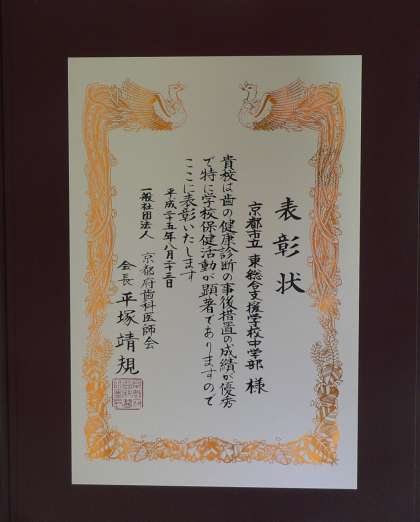 表彰状
京都市立 東総合支援学校中学部 様
貴校は歯の健康診断の事後措置の成績が優秀
で特に学校保健活動が顕著でありますので
ここに表彰いたします
平成二十五年八月二十二日
一般社団法人 京都府歯科医師会
会長 平塚靖規